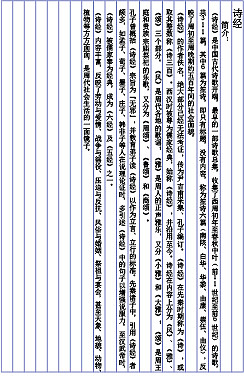 诗经
简介：
《诗经》是中国古代诗歌开端，最早的一部诗歌总集，收集了西周初年至春秋中叶（前11世纪至前6世纪）的诗歌，
共311篇，其中6篇为笙诗，即只有标题，没有内容，称为笙诗六篇（南陔、白华、华黍、由庚、崇伍、由仪），反
映了周初至周晚期约五百年间的社会面貌。
《诗经》的作者佚名，绝大部分已经无法考证，传为尹吉甫采集、孔子编订。《诗经》在先秦时期称为《诗》，或
取其整数称《诗三百》。西汉时被尊为儒家经典，始称《诗经》，并沿用至今。诗经在内容上分为《风》、《雅》、
《颂》三个部分。《风》是周代各地的歌谣；《雅》是周人的正声雅乐，又分《小雅》和《大雅》；《颂》是周王
庭和贵族宗庙祭祀的乐歌，又分为《周颂》、《鲁颂》和《商颂》。
孔子曾概括《诗经》宗旨为“无邪”，并教育弟子读《诗经》以作为立言、立行的标准。先秦诸子中，引用《诗经》者
颇多，如孟子、荀子、墨子、庄子、韩非子等人在说理论证时，多引述《诗经》中的句子以增强说服力。至汉武帝时，
《诗经》被儒家奉为经典，成为《六经》及《五经》之一。
《诗经》内容丰富，反映了劳动与爱情、战争与徭役、压迫与反抗、风俗与婚姻、祭祖与宴会，甚至天象、地貌、动物、
植物等方方面面，是周代社会生活的一面镜子。